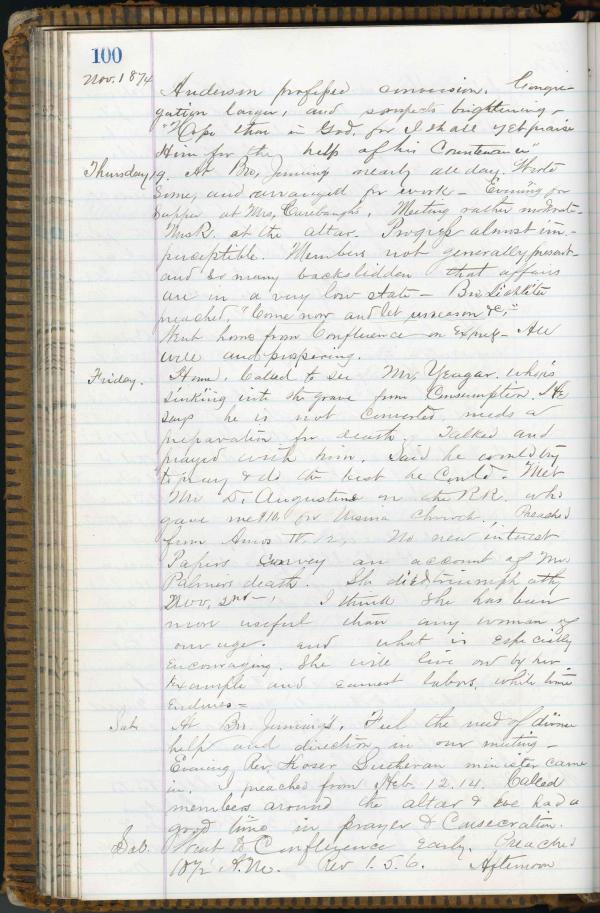 100
Nov. 1874
Anderson professed conversion. Congre-
gation larger, and prospects brightening -
"Hope thou in God, for I shall yet praise
Him for the help of his Countenance"
Thursday, 19. At Bro, Jennings nearly all day. Wrote
some, and arranged for work - Evening for
supper at Mrs, Meeting rather moderate -
at the altar. Progress almost im-
perceptible. Members not generally present -
and so many backslidden that affairs
are in a very low state - Bro Lichliter
preached, "Come now and let us reason &c,"
Went home from Confluence on Express - All
well and prospering.
Friday. Home. Called to see Mr, Yeagar. who is
sinking into the grave from Consumption. He
says he is not converted, needs a
preparation for death. Talked and
prayed with him. Said he would try
to pray & do the best he could. Met
Mr D. Augustine on the R.R. who
gave me $10, for Ursina Church. Preached
from Amos No new interest
Papers convey an account of Mrs
Palmers death. She died triumphantly
Nov, 2nd - I think she has been
more useful than any woman of
our age. and what is especially
encouraging. She will live on by her
example and earnest labors, while time
endures =
Sat. At Bro Jennings. Feel the need of divine
help and direction, in our meeting -
Evening Rev, Koser Lutheran minister came
in. I preached from Heb. 12.14. Called
members around the altar & we had a
good time in prayer & Consecration.
Sab. Went to Confluence early. Preached
10½ A.M. Rev 1. 5. 6. Afternoon